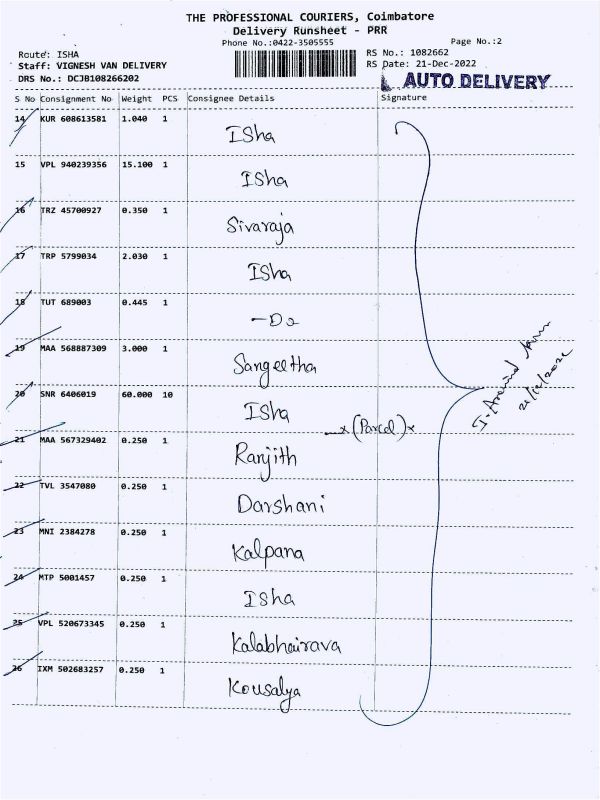 THE PROFESSIONAL COURIERS, Coimbatore
Delivery Runsheet - PRR
Phone No.:0422-3505555 Page No.:2
Route: ISHA RS No.: 1082662
Staff: VIGNESH VAN DELIVERY RS Date: 21-Dec-2022
DRS No.: DCJB108266202 AUTO DELIVERY
S No Consignment No Weight PCS Consignee Details Signature
14 KUR 608613581 1.040 1 Isha
15 VPL 940239356 15.100 1 Isha
16 TRZ 45700927 0.350 1 Sivaraja
17 TRP 5799034 2.030 1 Isha
18 TUT 689003 0.445 1 -Do
19 MAA 568887309 3.000 1 Sangeetha
20 SNR 6406019 60.000 10 Isha
x(Parcel)x
21 MAA 567329402 0.250 1 Ranjith
22 TVL 3547080 0.250 1 Darshani
23 MNI 2384278 0.250 1 Kalpana
24 MTP 5001457 0.250 1 Isha
25 VPL 520673345 0.250 1 Kalabhairava
26 IXM 502683257 0.250 1 Kousalya